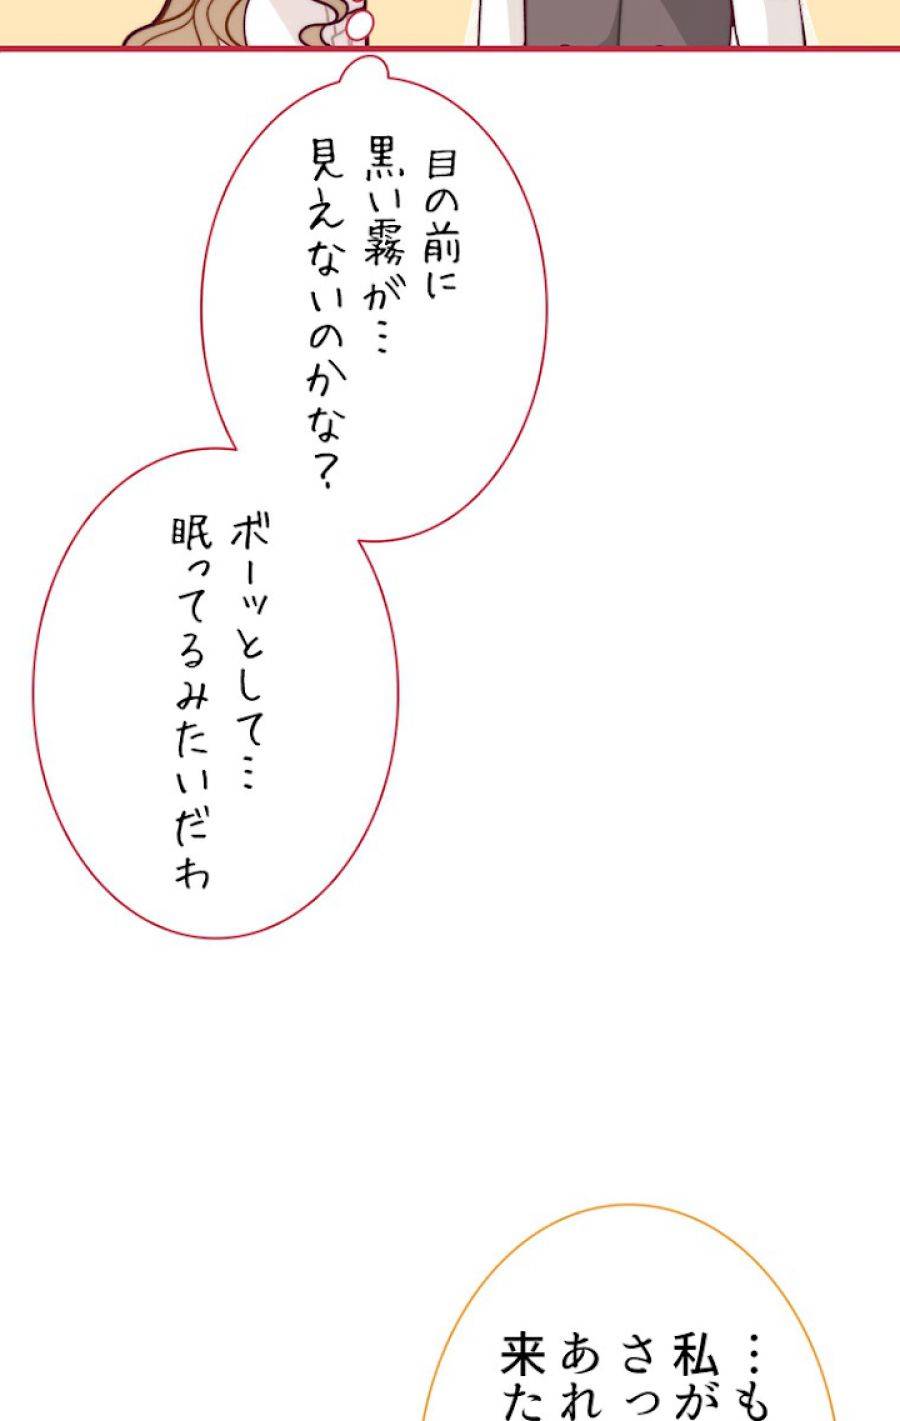 目の前に
黒い霧が…
見えないのかな？
ボーッとして…
眠ってるみたいだわ
…も
私が
さっ
あれ
来た